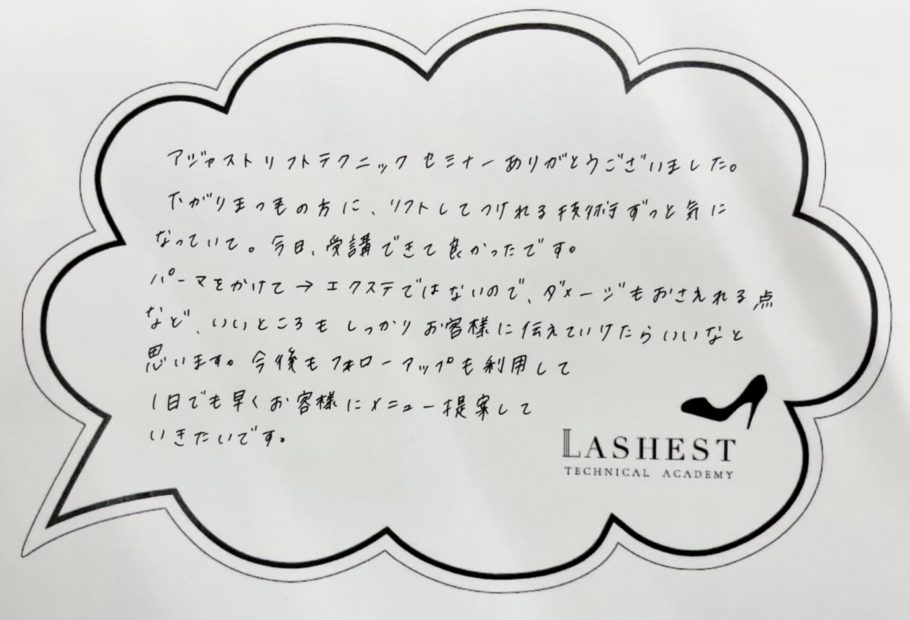 アジャストリフトテクニックセミナーありがとうございました。
下がりまつ毛の方に、リフトしてつけれる技術ずっと気に
なっていて。今日、受講できて良かったです。
パーマをかけて→エクステではないので、ダメージもおさえれる点
など、いいところもしっかりお客様に伝えていけたらいいなと
思います。今後もフォローアップも利用して
1日でも早くお客様にメニュー提案して
いきたいです。
LASHEST
TECHNICAL ACADEMY